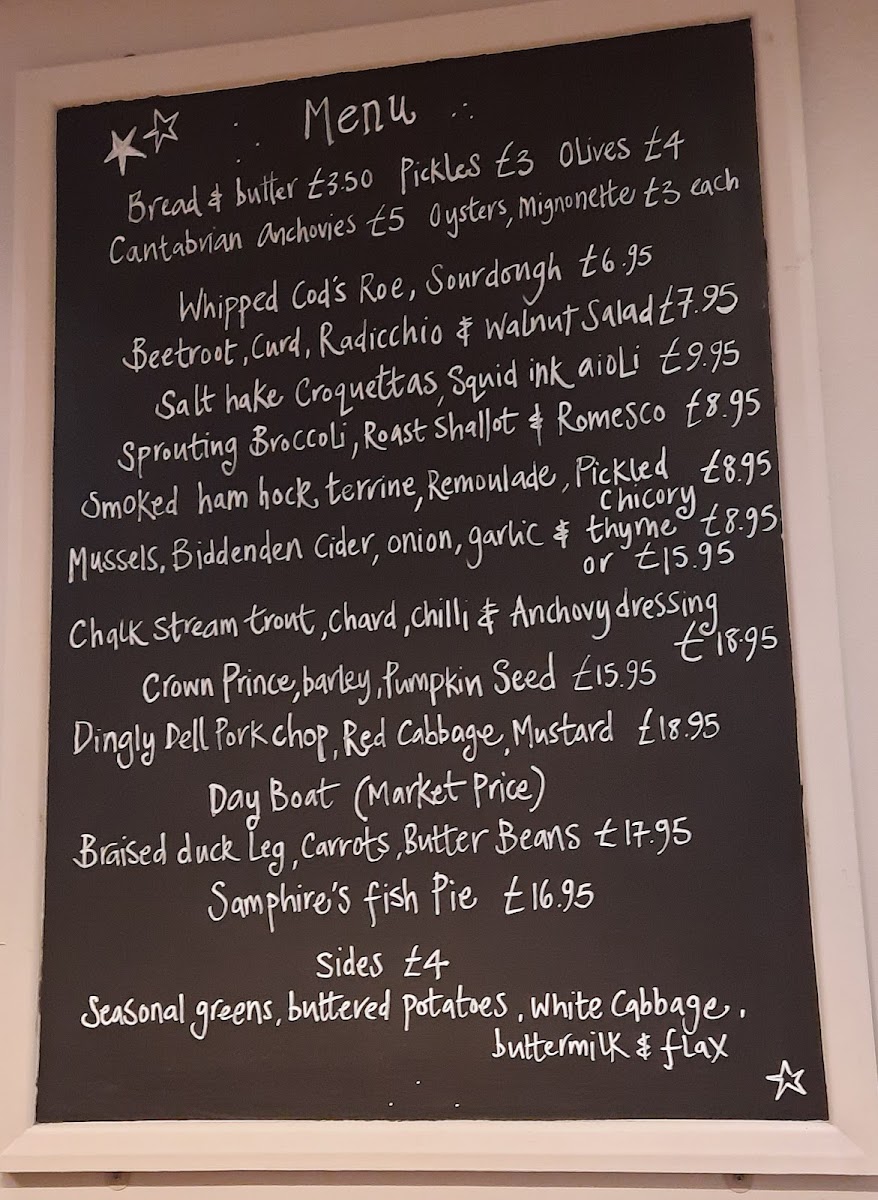 Menu
Bread & butter £3.50 Pickles £3 Olives £4
Cantabrian Anchovies £5 Oysters, Mignonette £3 each
Whipped Cod's Roe, Sourdough £6.95
Beetroot, Curd, Radicchio & Walnut Salad £7.95
Salt hake Croquettas, Squid ink aioli £9.95
Sprouting Broccoli, Roast Shallot & Romesco £8.95
Smoked ham hock terrine, Remoulade, Pickled £8.95
Chicory
Mussels, Biddenden Cider, onion, garlic & thyme £8.95
or £15.95
Chalk Stream trout, Chard, chilli & Anchovy dressing
£18.95
Crown Prince, barley, Pumpkin Seed £15.95
Dingly Dell Pork chop, Red Cabbage, Mustard £18.95
Day Boat (Market Price)
Braised duck Leg, Carrots, Butter Beans £17.95
Samphire's fish Pie £16.95
Sides £4
Seasonal greens, buttered Potatoes, White Cabbage,
buttermilk & flax